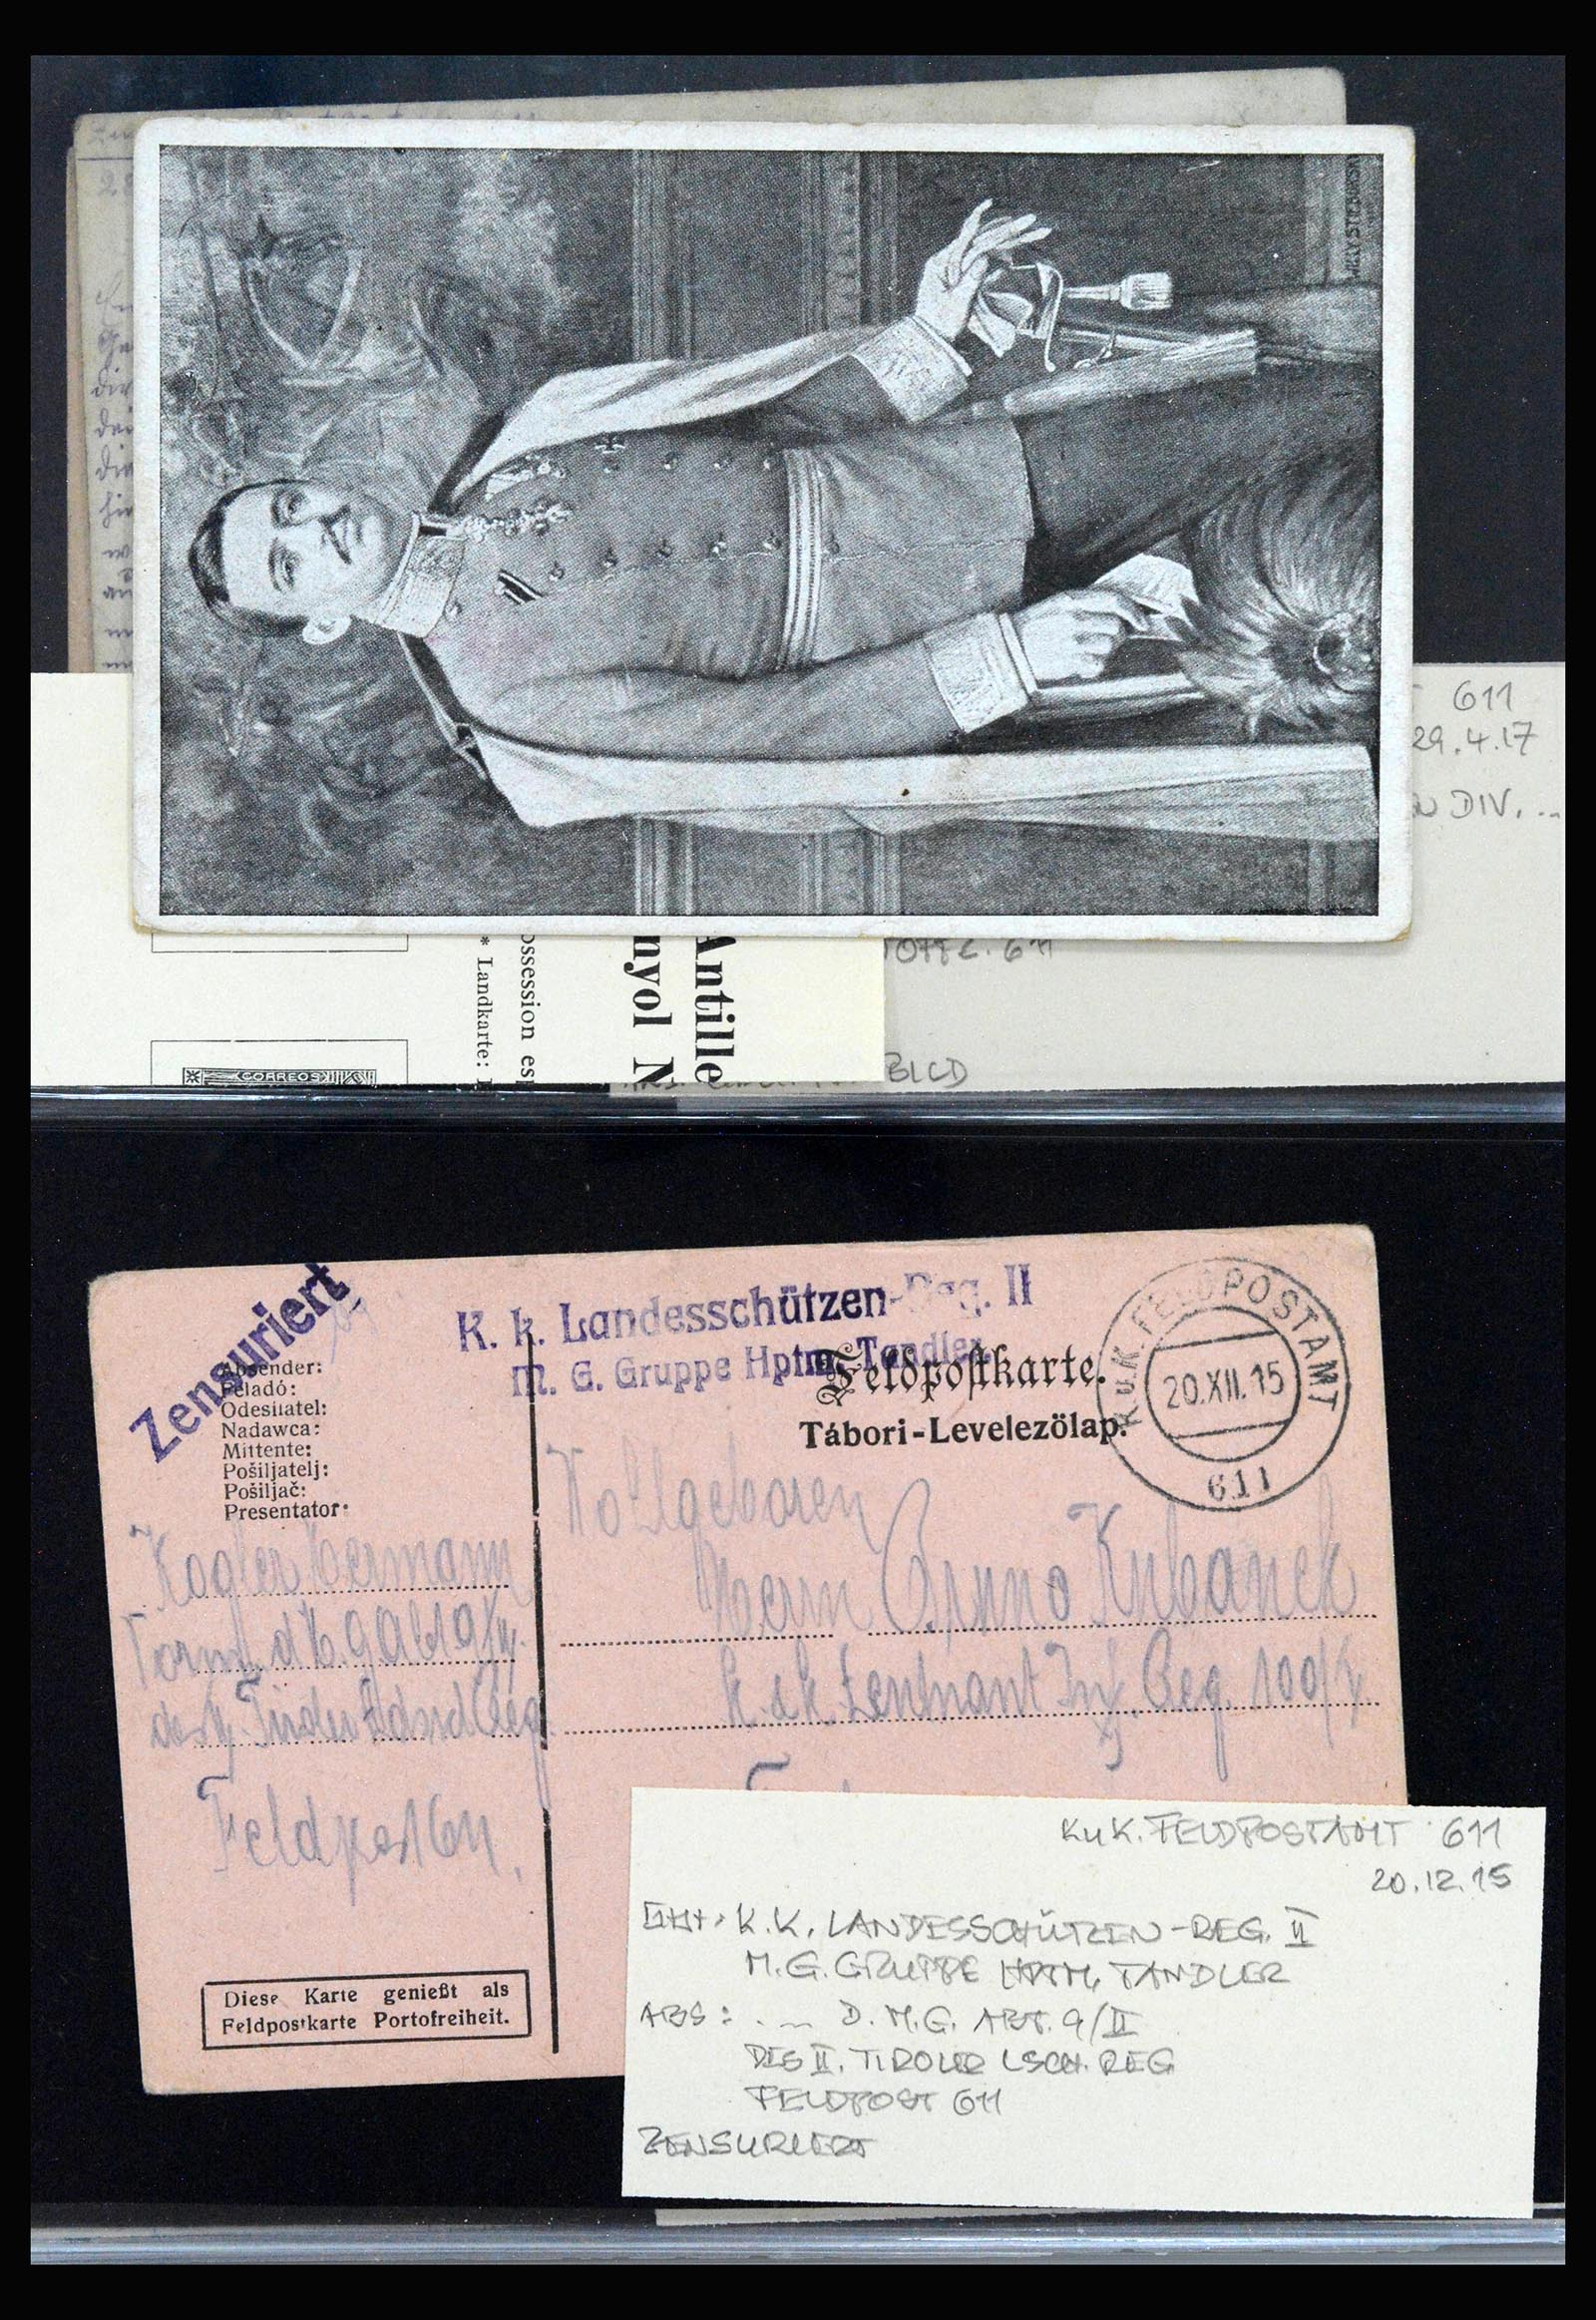 WILLY STIEBORSKY
611
29.4.17
DIV. ...
611
BLCD
Antille
nyol N
ossession esp
* Landkarte:
CORREOS
Zensuriert
K. k. Landesschützen-Reg. II
M. G. Gruppe Hptm. Tandler
Feldpostkarte.
Tábori-Levelezölap.
K.u.K. FELDPOSTAMT
20.XII.15
611
Absender:
Feladó:
Odesílatel:
Nadawca:
Mittente:
Pošiljatelj:
Pošiljač:
Presentator:
Kogler Hermann
des II. Tiroler Ldsschd Reg.
Feldpost 611.
Wohlgeboren
Herrn Bruno Kubanek
k.u.k. Leutnant Inf. Reg. 100/
Diese Karte genießt als
Feldpostkarte Portofreiheit.
K u K. FELDPOSTAMT 611
20.12.15
K.K. LANDESSCHÜTZEN-REG. II
M.G. GRUPPE HPTM. TANDLER
ABS: . ... D. M.G. ABT. 9/II
DES II. TIROLER LSCH. REG
FELDPOST 611
ZENSURIERT